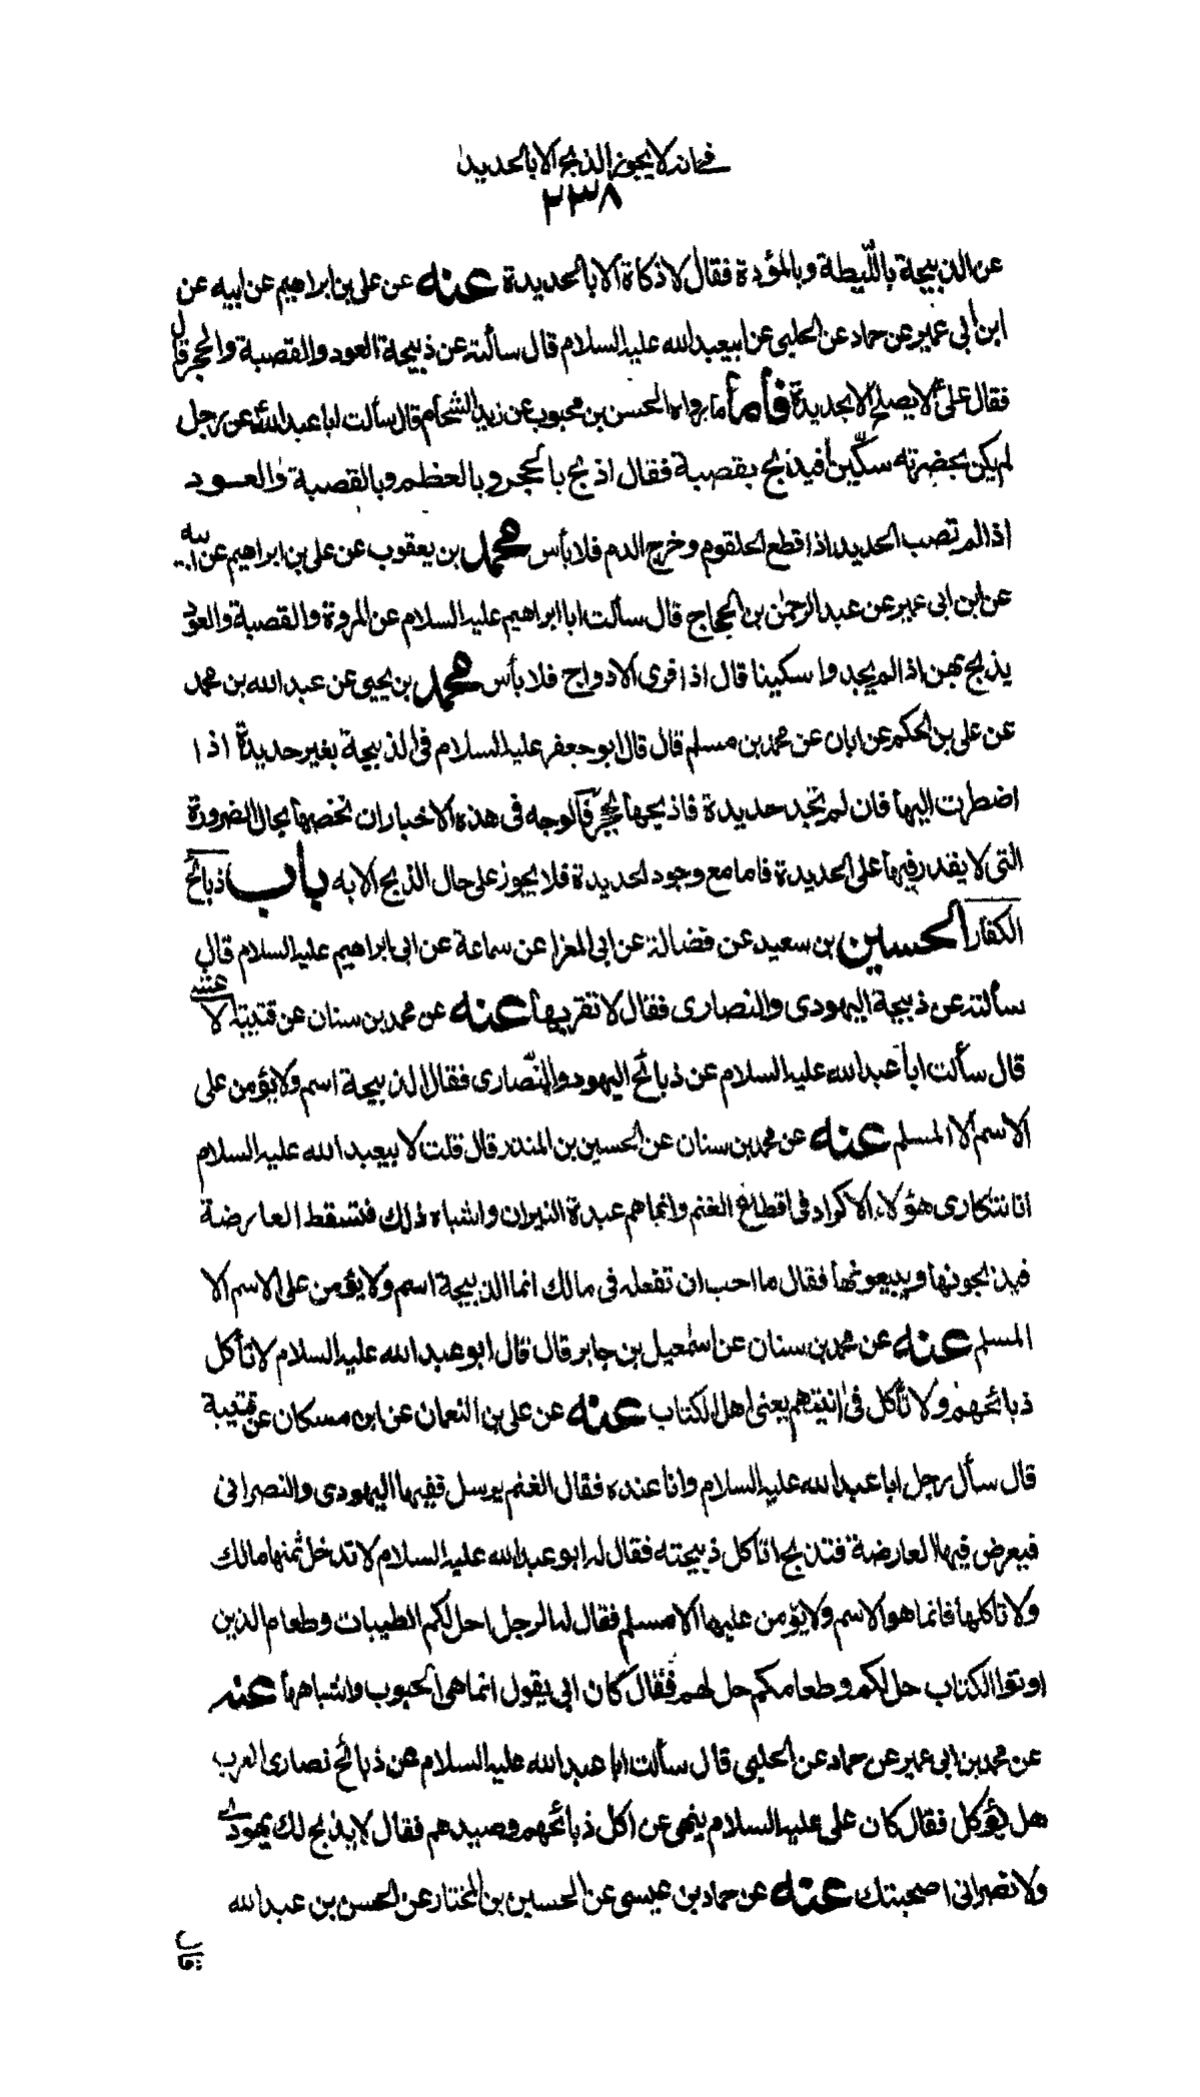 في انه لا يجوز الذبح الا بالحديد
٢٣٨
عن الذبيحة بالليطة وبالمؤدة فقال لا ذكاة الا بالحديدة عنه عن علي بن ابراهيم عن ابيه عن
ابن ابي عمير عن حماد عن الحلبي عن ابيعبد الله عليه السلام قال سألته عن ذبيحة العود والقصبة والحجر قال
فقال علي لا يصلح الا بحديدة فأما ما رواه الحسن بن محبوب عن زيد الشحام قال سألت ابا عبد الله عن رجل
لم يكن بحضرته سكّين أفيذبح بقصبة فقال اذبح بالحجر وبالعظم وبالقصبة والعود
اذا لم تصب الحديد اذا قطع الحلقوم وخرج الدم فلا بأس محمد بن يعقوب عن علي بن ابراهيم عن ابيه
عن ابن ابي عمير عن عبد الرحمن بن الحجاج قال سألت ابا ابراهيم عليه السلام عن المروة والقصبة والعود
يذبح بهن اذا لم يجدوا سكينا قال اذا فرى الاوداج فلا بأس محمد بن يحيى عن عبد الله بن محمد
عن علي بن الحكم عن ابان عن محمد بن مسلم قال قال ابو جعفر عليه السلام في الذبيحة بغير حديدة اذا
اضطرت اليها فان لم تجد حديدة فاذبحها بحجر فالوجه في هذه الاخبار ان نخصها بحال الضرورة
التي لا يقدر فيها على الحديدة فاما مع وجود الحديدة فلا يجوز على حال الذبح الا به باب ذبائح
الكفار الحسين بن سعيد عن فضالة عن ابي المغرا عن سماعة عن ابي ابراهيم عليه السلام قال
سألته عن ذبيحة اليهودي والنصارى فقال لا تقربها عنه عن محمد بن سنان عن قتيبة الاعشى
قال سألت ابا عبد الله عليه السلام عن ذبائح اليهود والنّصارى فقال الذبيحة اسم ولا يؤمن على
الاسم الا المسلم عنه عن محمد بن سنان عن الحسين بن المنذر قال قلت لابيعبد الله عليه السلام
انا نتكارى هؤلاء الاكراد في اقطاع الغنم وانما هم عبدة النيران واشباه ذلك فتسقط العارضة
فيذبحونها ويبيعونها فقال ما احب ان تفعله في مالك انما الذبيحة اسم ولا يؤمن على الاسم الا
المسلم عنه عن محمد بن سنان عن اسمعيل بن جابر قال قال ابو عبد الله عليه السلام لا تأكل
ذبائحهم ولا تأكل في انيتهم يعني اهل الكتاب عنه عن علي بن النعمان عن ابن مسكان عن قتيبة
قال سأل رجل ابا عبد الله عليه السلام وانا عنده فقال الغنم يرسل ففيها اليهودي والنصراني
فيعرض فيها العارضة فتذبح اتاكل ذبيحته فقال له ابو عبد الله عليه السلام لا تدخل ثمنها مالك
ولا تاكلها فانما هو الاسم ولا يؤمن عليها الا مسلم فقال له الرجل احل لكم الطيبات وطعام الذين
اوتوا الكتاب حل لكم وطعامكم حل لهم فقال كان ابي يقول انما هي الحبوب واشباهها عنه
عن محمد بن ابي عمير عن حماد عن الحلبي قال سألت ابا عبد الله عليه السلام عن ذبائح نصارى العرب
هل يؤكل فقال كان علي عليه السلام ينهى عن اكل ذبائحهم وصيدهم فقال لا يذبح لك يهودي
ولا نصراني اضحيتك عنه عن حماد بن عيسى عن الحسين بن المختار عن الحسن بن عبد الله
قال